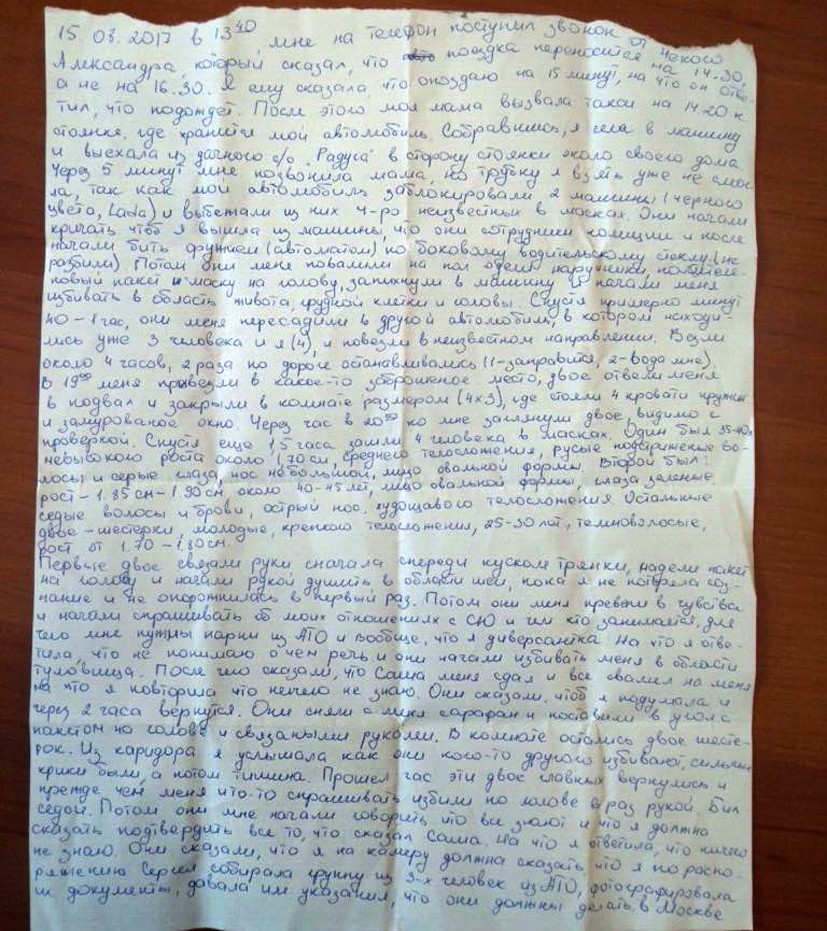 15.08.2017 в 13⁴⁰, мне на телефон поступил звонок от некого
Александра, который сказал, что поездка переносится на 14.30,
а не на 16.30. Я ему сказала, что опоздаю на 15 минут, на что он отве-
тил, что подождет. После этого моя мама вызвала такси на 14.20 к
стоянке, где хранится мой автомобиль. Собравшись, я села в машину
и выехала из дачного с/о "Радуга" в сторону стоянки около своего дома
Через 5 минут мне позвонила мама, но трубку я взять уже не смог-
ла, так как мой автомобиль заблокировали 2 машины (черного
цвета, Lada) и выбежали из них 4-ро неизвестных в масках. Они начали
кричать чтоб я вышла из машины, что они сотрудники полиции и после
начали бить оружием (автоматом) по боковому водительскому стеклу (не
разбили). Потом они меня повалили на пол одели наручники, полиэтиле-
новый пакет и маску на голову, запихнули в машину и начали меня
избивать в область живота, грудной клетки и головы. Спустя примерно минут
40 - 1 час, они меня пересадили в другой автомобиль, в котором находи-
лись уже 3 человека и я (4), и повезли в неизвестном направлении. Везли
около 4 часов, 2 раза по дороге останавливались (1-заправится, 2-вода мне).
В 19⁰⁰ меня привезли в какое-то заброшеное место, двое отвели меня
в подвал и закрыли в комнате размером (4×3), где стояли 4 кровати
и замурованое окно. Через час в 20⁰⁰ ко мне заглянули двое, видимо с
проверкой. Спустя еще 1.5 часа зашли 4 человека в масках. Один был 35-40л
невысокого роста около 1.70 см, среднего телосложения, русые подстриженые во-
лосы и серые глаза, нос небольшой, лицо овальной формы. Второй был:
рост - 1.85 см - 1.90 см, около 40-45 лет, лицо овальной формы, глаза зеленые
седые волосы и брови, острый нос, худощавого телосложения. Остальные
двое - шестерки, молодые, крепкого телосложения, 25-30 лет, темноволосые,
рост от 1.70 - 1.80 см.
Первые двое связали руки сначала спереди куском тряпки, надели пакет
на голову и начали рукой душить в области шеи, пока я не потеряла соз-
нание и не опорожнилась в первый раз. Потом они меня привели в чувства
и начали спрашивать об моих отношениях с СЮ и чем кто занимается, для
чего мне нужны парни из АТО и вообще, что я диверсантка. На что я отве-
тила, что не понимаю о чем речь и они начали избивать меня в области
туловища. После чего сказали, что Саша меня сдал и все свалил на меня
на что я повторила что ничего не знаю. Они сказали, чтоб я подумала и
через 2 часа вернутся. Они сняли с меня сарафан и поставили в угол с
пакетом на голове и связаными руками. В комнате остались двое шесте-
рок. Из каридора я услышала как они кого-то другого избивают, сильные
крики были, а потом тишина. Прошел час эти двое главных вернулись и
прежде чем меня что-то спрашивать избили по голове раз рукой. Бил
седой. Потом они мне начали говорить что все знают и что я должна
сказать подтвердить все то, что сказал Саша. На что я ответила, что ничего
не знаю. Они сказали, что я на камеру должна сказать, что я по распо-
ряжению Сергея собирала группу из 3-х человек из АТО, фотографировала
их документы, давала им указания, что они должны делать в Москве